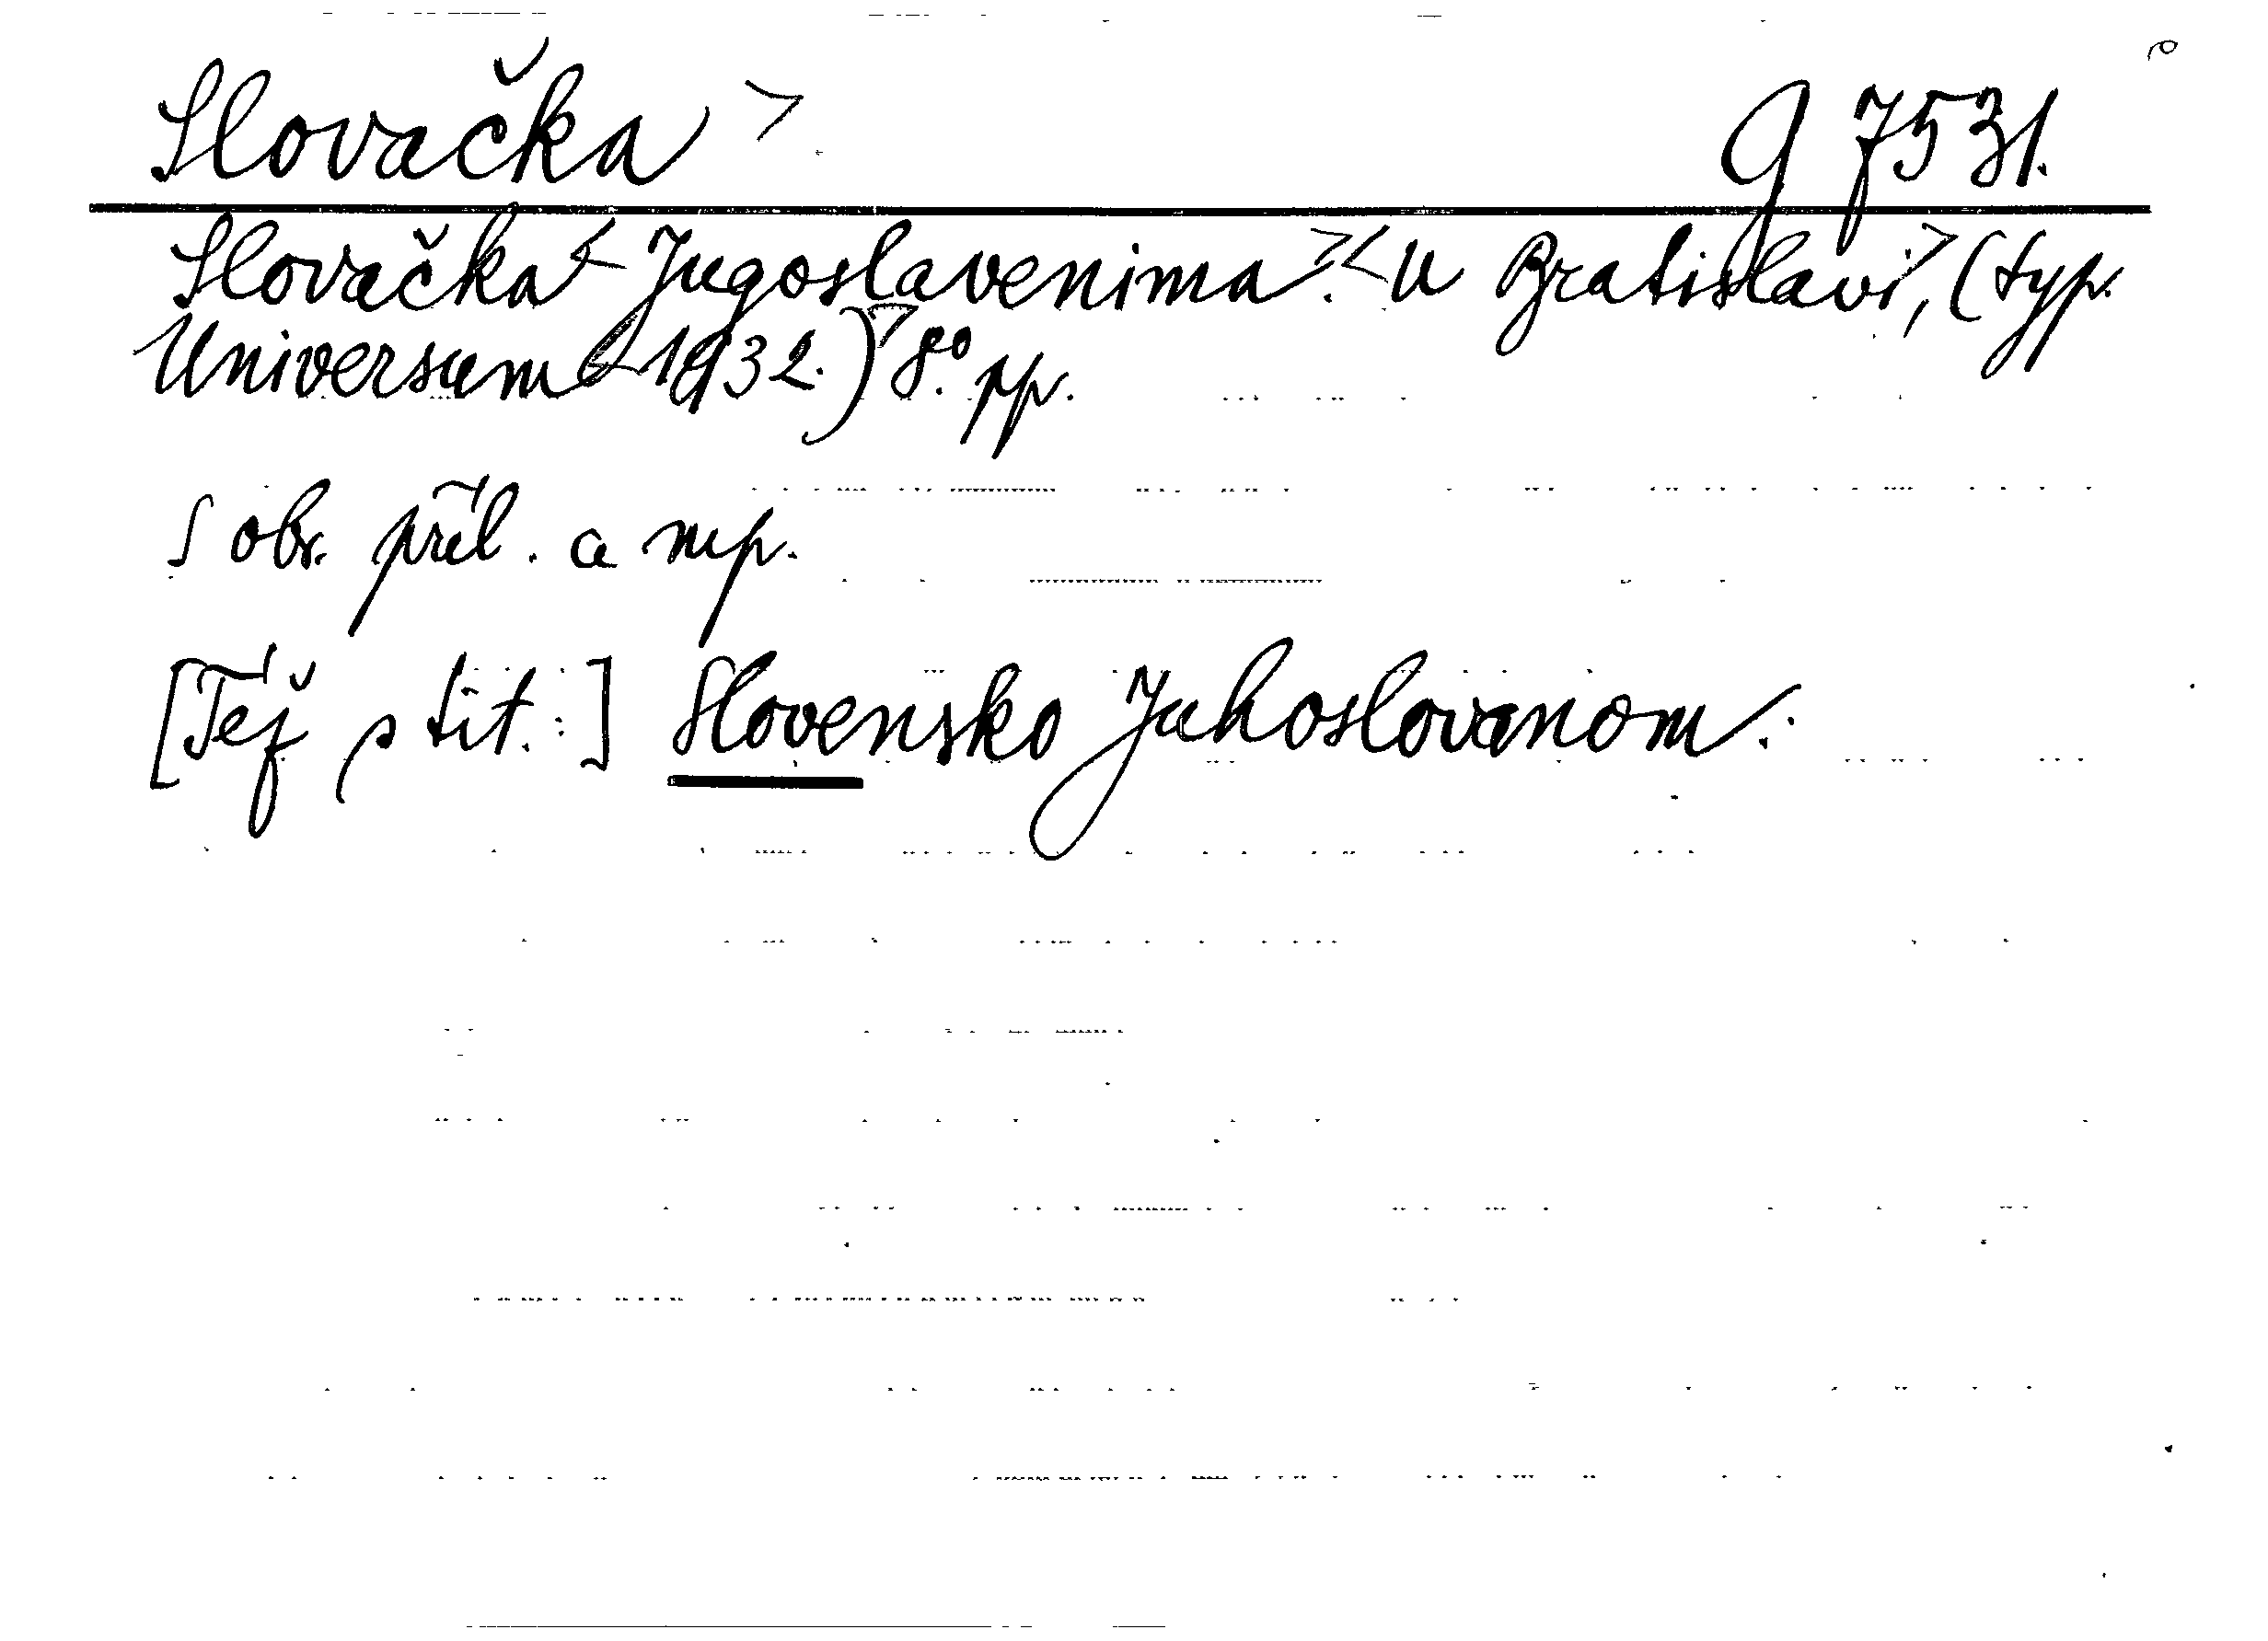 Slovačka > g 7531.
Slovačka < Jugoslavenima. > < U Bratislavi, > (typ.
Universum < 1932.) > 8° pp.
S obr. příl. a mp.
[Též s tit.:] Slovensko Juhoslovanom.